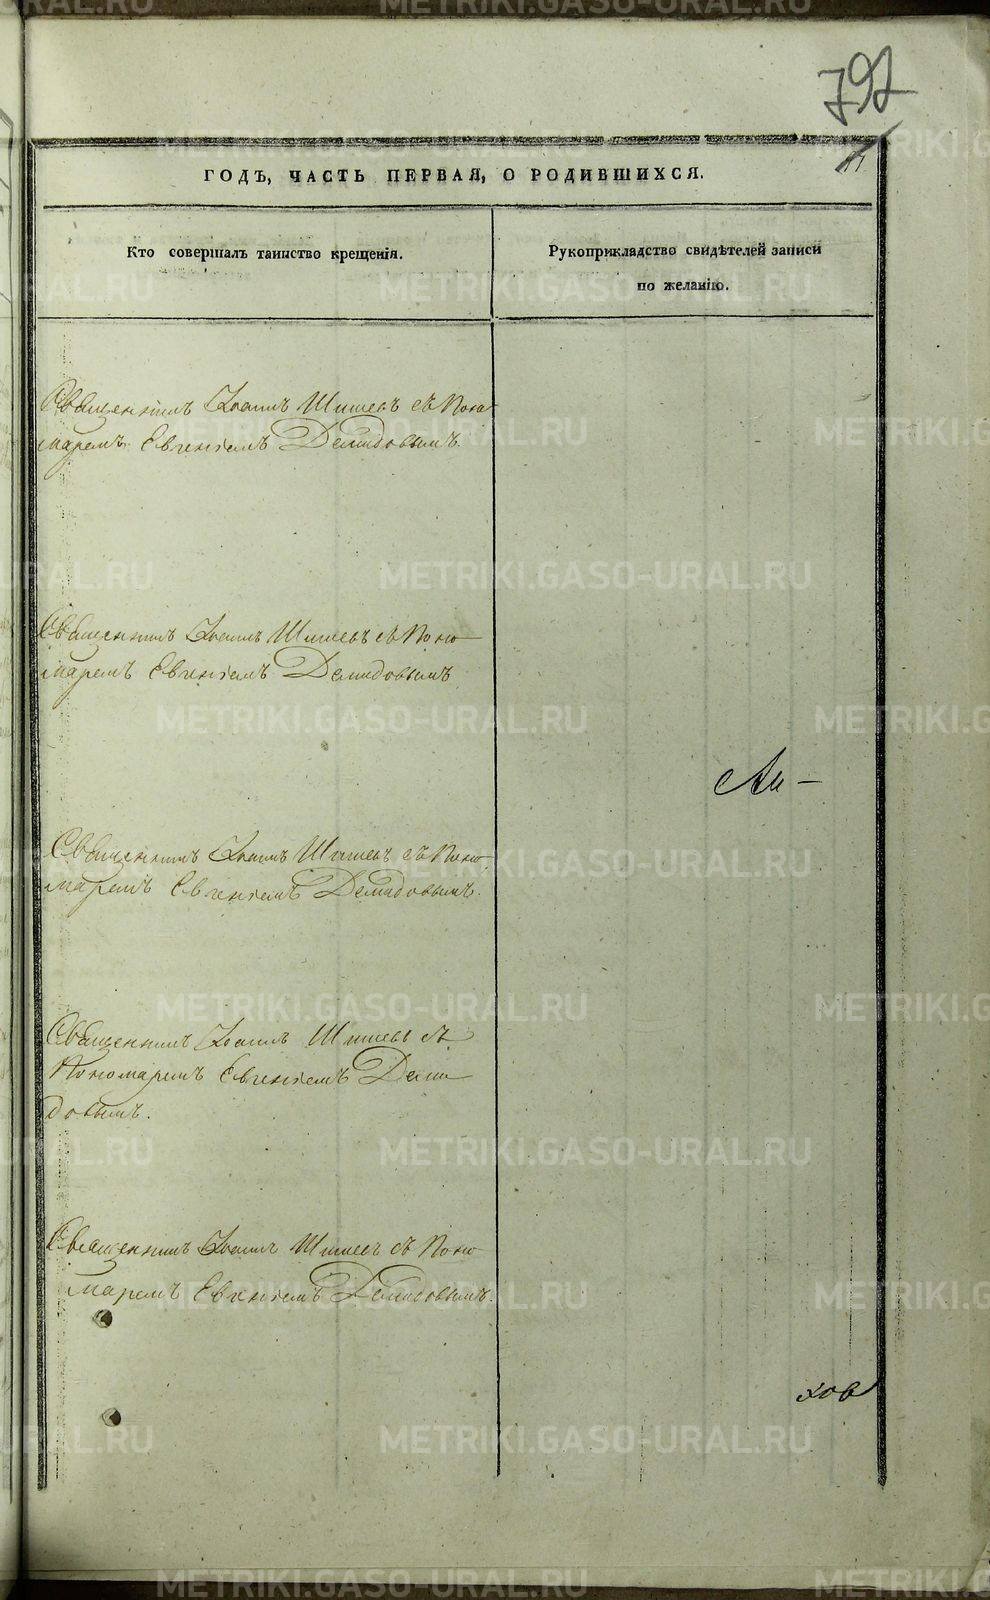 792
ГОДЪ, ЧАСТЬ ПЕРВАЯ, О РОДИВШИХСЯ.
Кто совершалъ таинство крещенія.
Рукоприкладство свидѣтелей записи
по желанію.
Священникъ Іоаннъ Шишевъ съ Поно
маремъ Евгеніемъ Демидовымъ.
Священникъ Іоаннъ Шишевъ съ Поно
маремъ Евгеніемъ Демидовымъ
Ан-
Священникъ Іоаннъ Шишевъ съ Поно
маремъ Евгеніемъ Демидовымъ.
Священникъ Іоаннъ Шишевъ съ
Пономаремъ Евгеніемъ Деми
довымъ.
Священникъ Іоаннъ Шишевъ съ Поно
маремъ Евгеніемъ Демидовымъ.
ков
METRIKI.GASO-URAL.RU